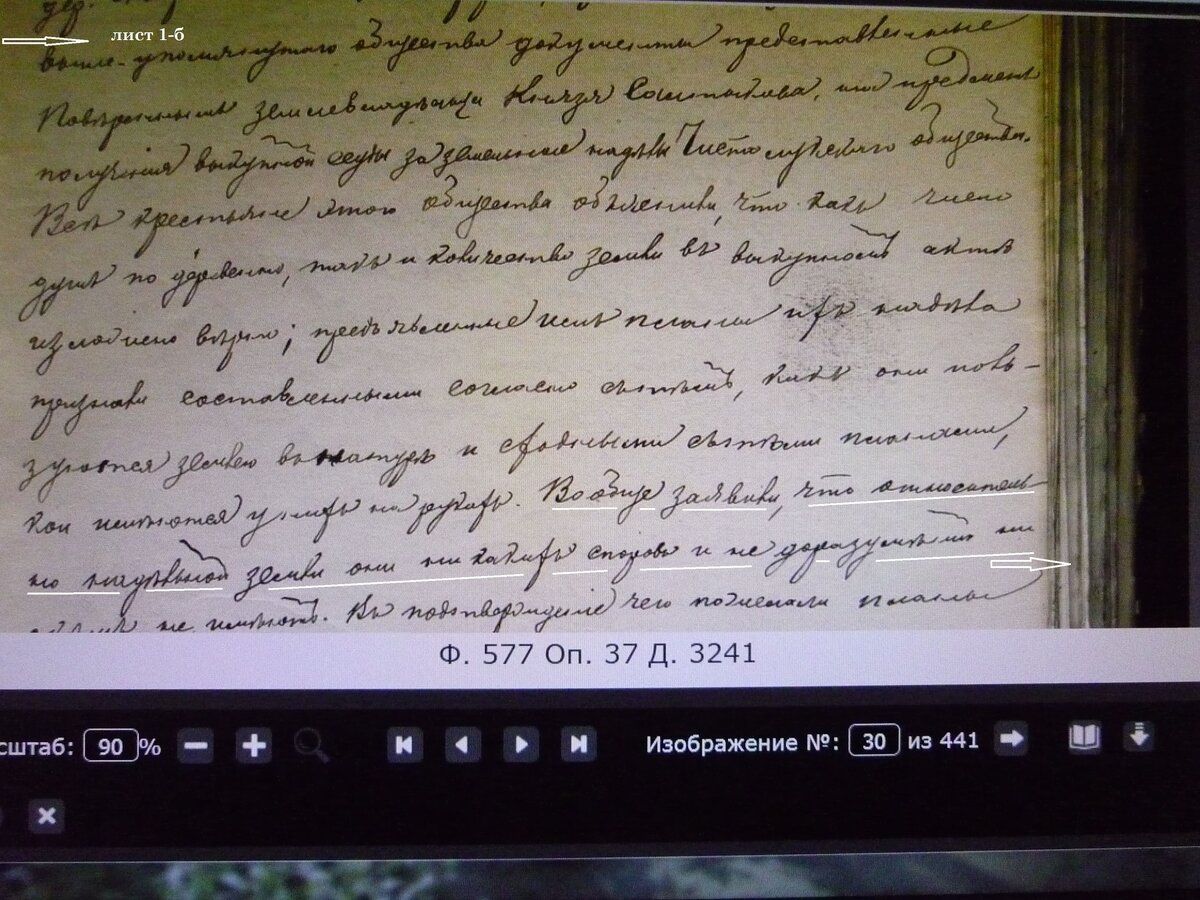 дер.
лист 1-б
выше-упомянутаго общества документы представленные
Повѣреннымъ землевладѣльца Князя Салтыкова, на предметъ
полученія выкупной ссуды за земельные надѣлы Чисто лужскаго общества.
Всѣ крестьяне этого общества объяснили, что какъ число
душъ по деревнѣ, такъ и количество земли въ выкупномъ актѣ
изложено вѣрно; предъявленные имъ планы ихъ надѣла
признали составленными согласно съ тѣмъ, какъ они поль-
зуются землею въ натурѣ и сходными съ тѣми планами,
кои имѣются у нихъ на рукахъ. Вообще заявили, что относитель-
но надѣльной земли они ни какихъ споровъ и не доразумѣній ни
не имѣютъ. Въ подтвержденіе чего пожелали планы
Ф. 577 Оп. 37 Д. 3241
сштаб: 90 % Изображение №: 30 из 441